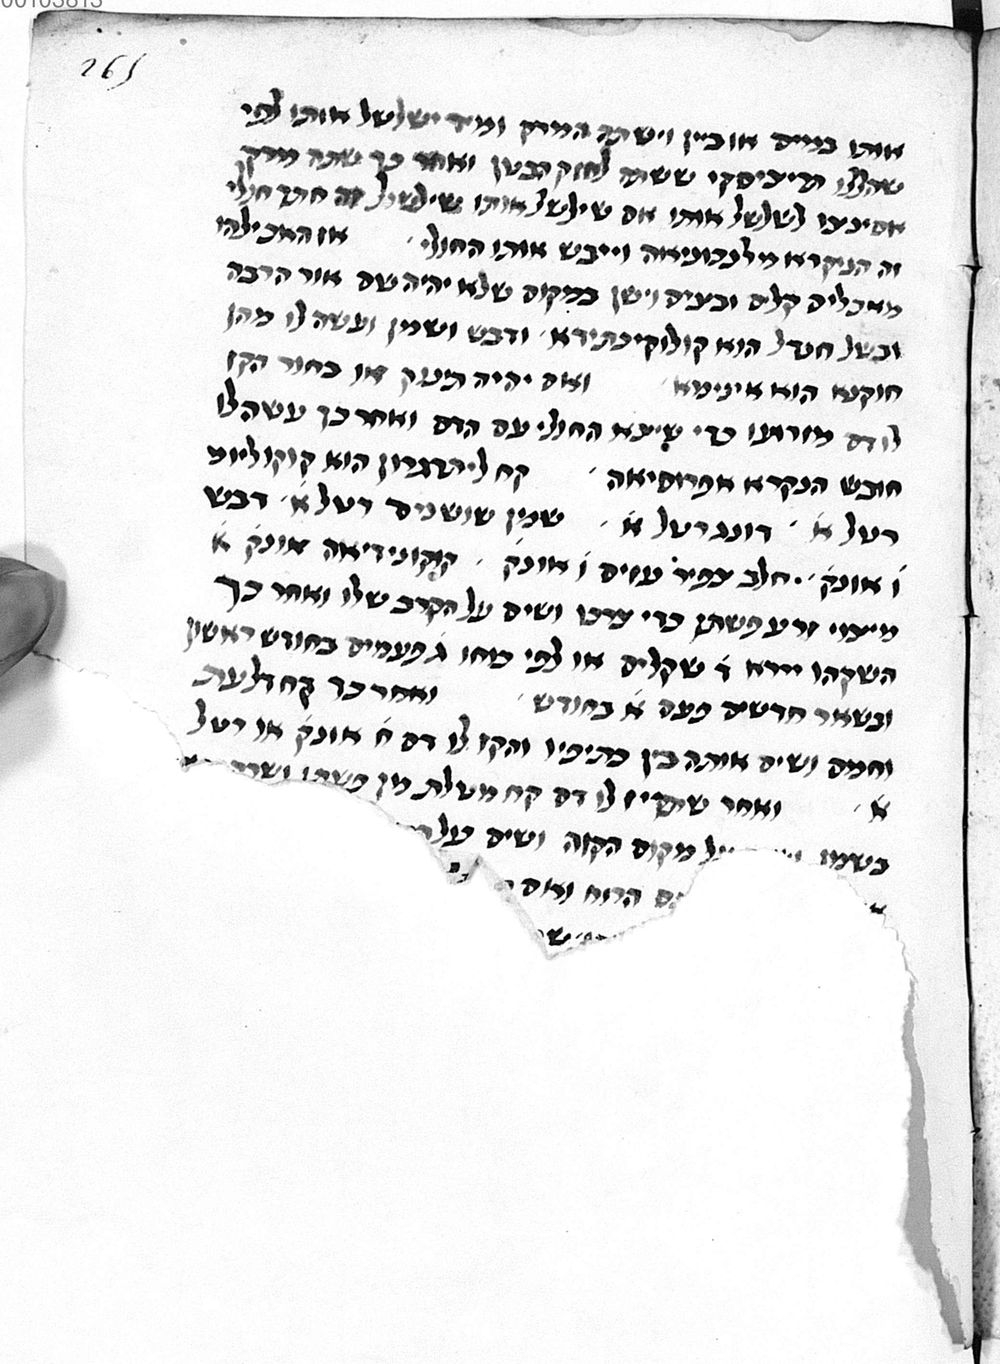 00103813
265
אותו במים או ביין וישתה המרק ומיד ישלשל אותו לפי
שהללו ששותה לחזק הבטן ואחר כך שותה מרקן
אם ירצו לשלשל אותו אם שילשל אותו שילשול זה חתך חולי
זה הנקרא מילנכוניאה וייבש אותו החולי אז האכילהו
מאכלים קלים וביצים וישן במקום שלא יהיה שם אור הרבה
ובשל חנדל הוא קולוקינתידא ודבש ושמן ועשה לו מהן
חוקנא הוא אינימא ואם יהיה תינוק או בחור הקז
לו דם מזרועו כדי שיצא החולי עם הדם ואחר כך עשה לו
חובש הנקרא אפרוסיאה קח ליתרגרון הוא קוקוליום
רטל א׳ דונג רטל א׳ שמן שושנים רטל א׳ דבש
ו׳ אונק׳ חלב צפיר עזים ו׳ אונק׳ קוקונידיאה אונק׳ א׳
מיצוי זרע פשתן כדי צרכו ושים על הקרב שלו ואחר כך
השקהו יירא ד׳ שקלים או לפי כוחו ג׳ פעמים בחודש ראשון
ובשאר חדשים פעם א׳ בחודש ואחר כך קח דלעת
וחמם ושים אותה בין כתיפיו והקז לו דם ח׳ אונק׳ או רטל
א׳ ואחר שתקיז לו דם קח מטלת מן פשתן
בשמן על מקום הקזה ושים על
הרוח ואם